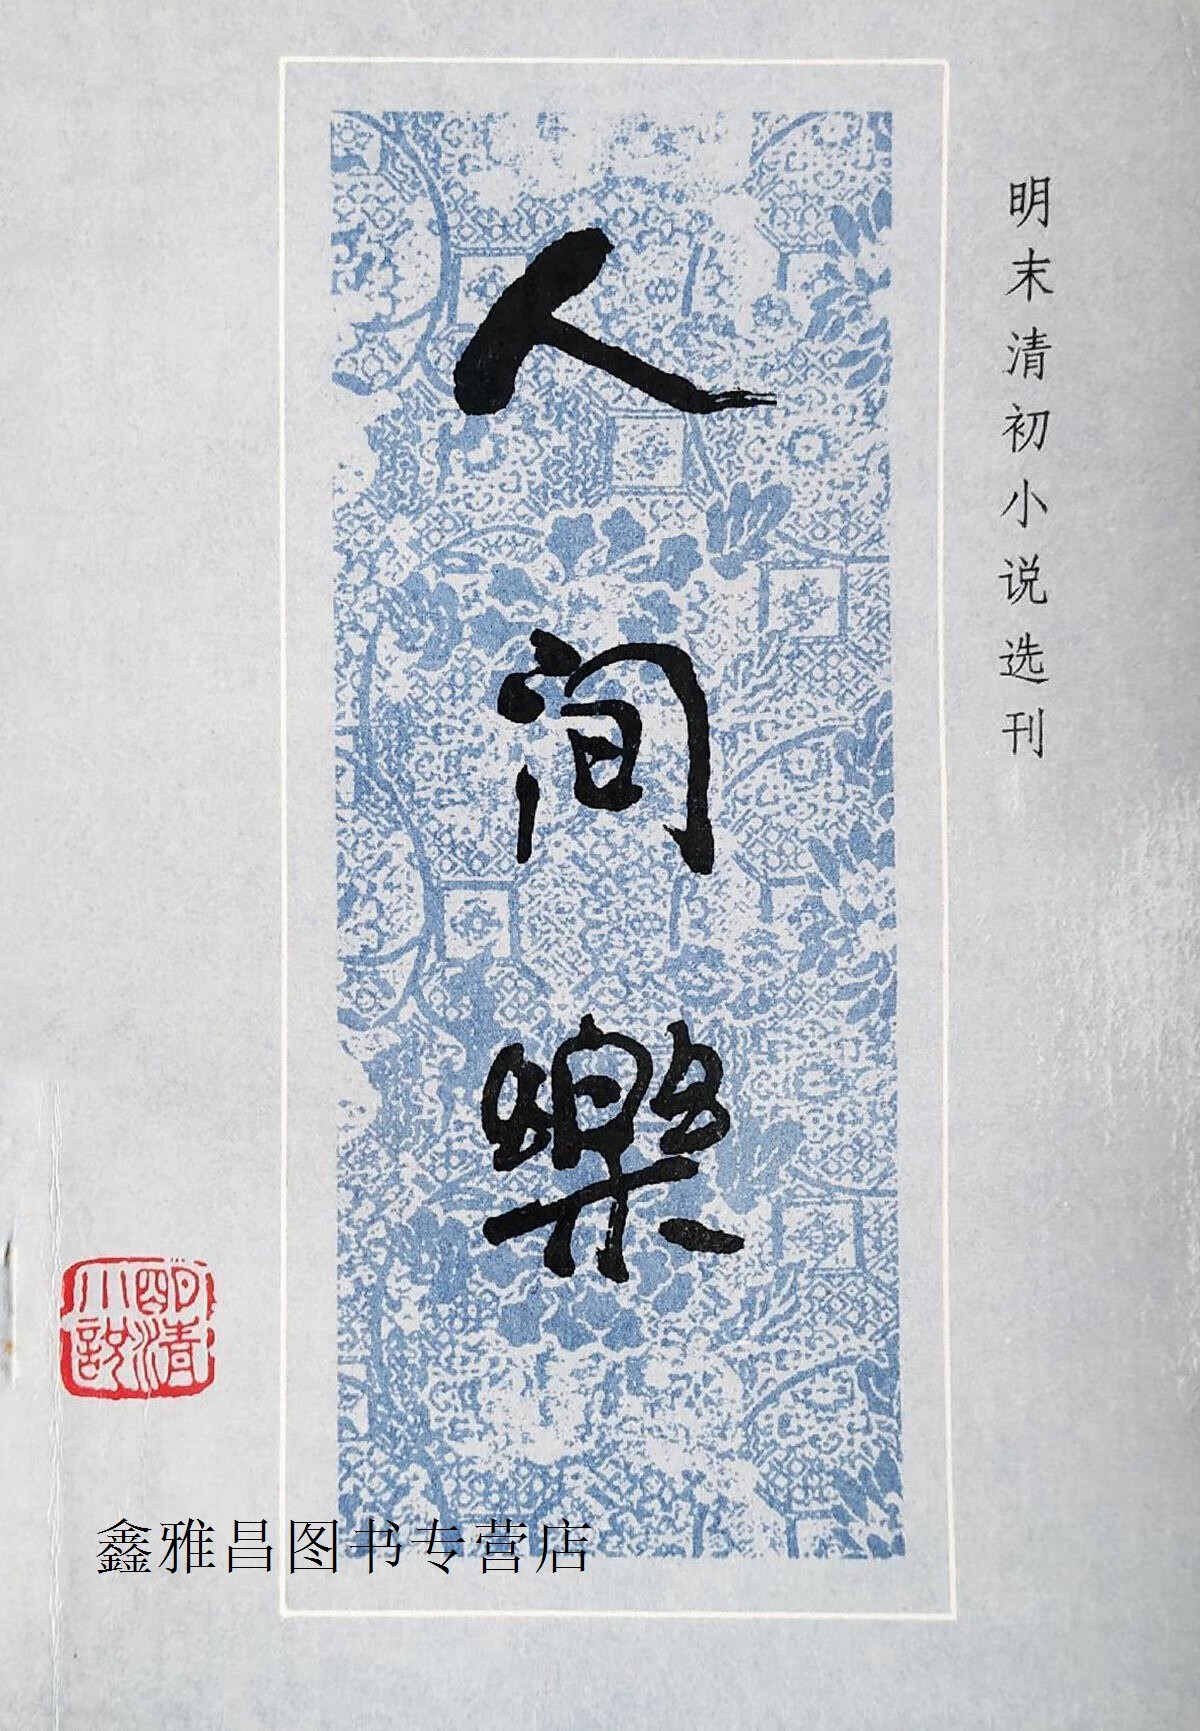 明末清初小说选刊
人间樂
明清
小說
鑫雅昌图书专营店